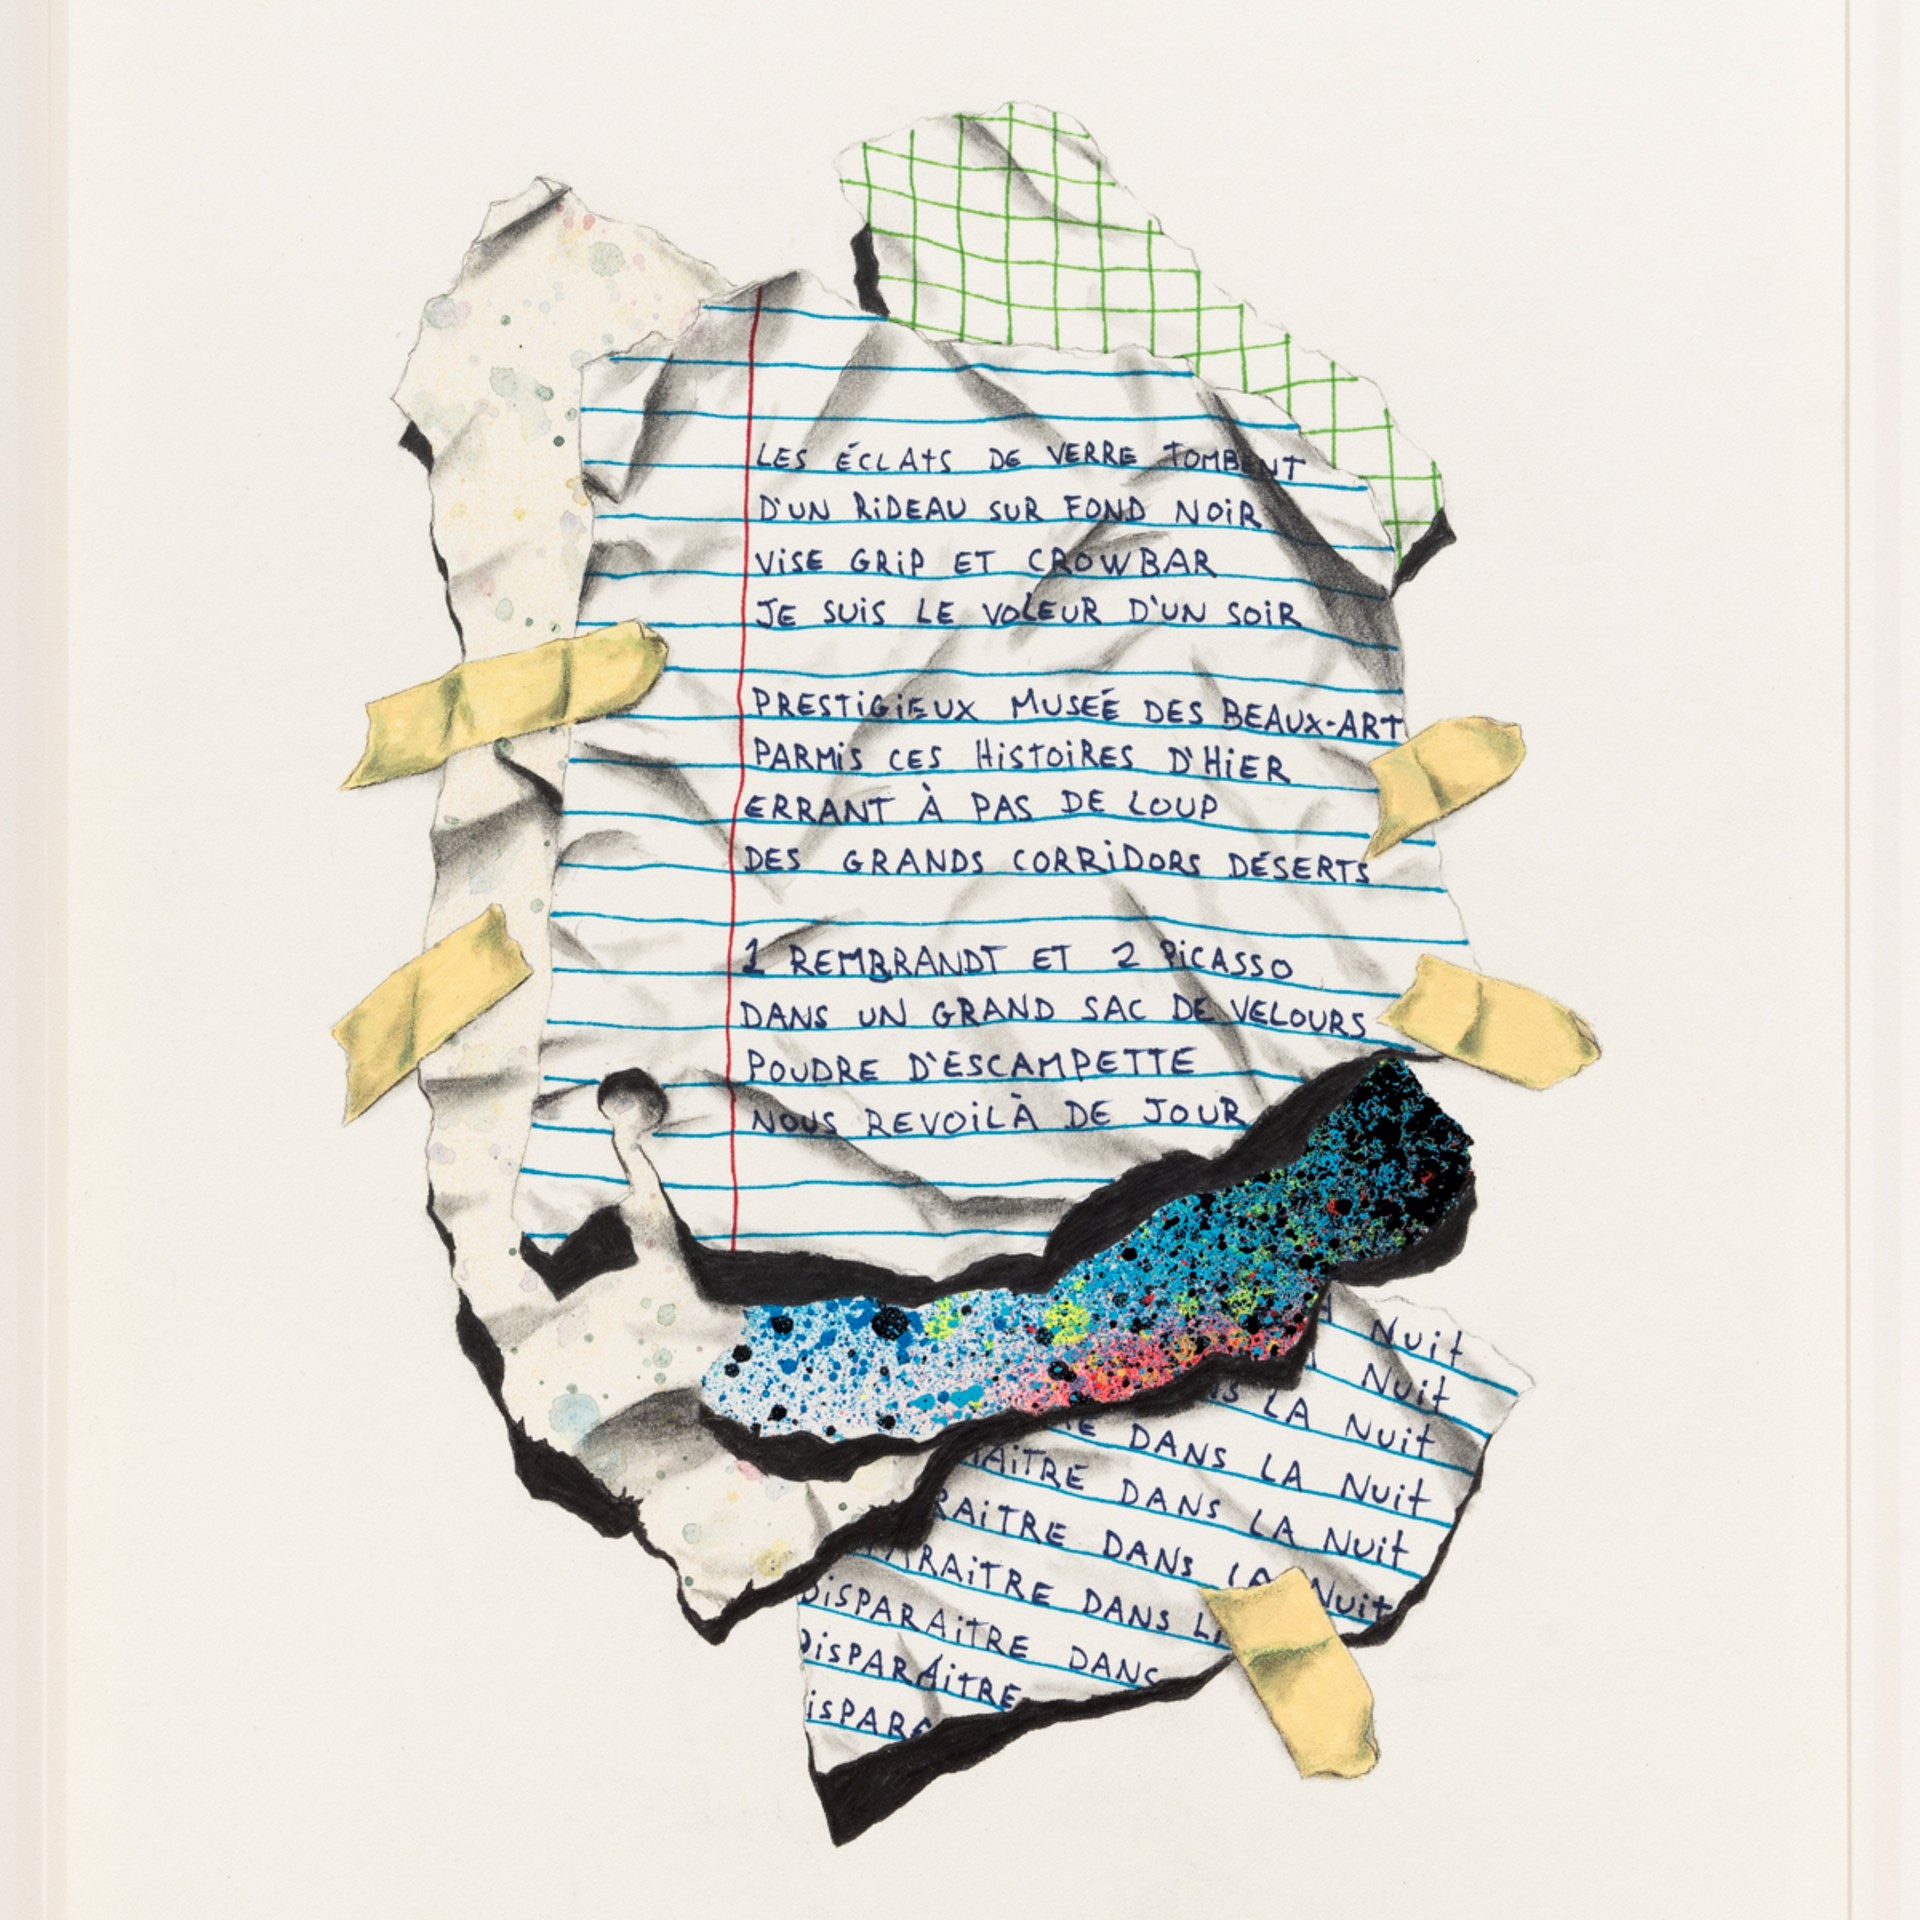 LES ÉCLATS DE VERRE TOMBENT
D'UN RIDEAU SUR FOND NOIR
VISE GRIP ET CROWBAR
JE SUIS LE VOLEUR D'UN SOIR
PRESTIGIEUX MUSÉE DES BEAUX-ART
PARMIS CES HISTOIRES D'HIER
ERRANT À PAS DE LOUP
DES GRANDS CORRIDORS DÉSERTS
1 REMBRANDT ET 2 PICASSO
DANS UN GRAND SAC DE VELOURS
POUDRE D'ESCAMPETTE
NOUS REVOILÀ DE JOUR
A NUIT
NUIT
S LA NUIT
RE DANS LA NUIT
RAITRE DANS LA NUIT
RAITRE DANS LA NUIT
ARAITRE DANS LA NUIT
DISPARAITRE DANS
DISPARAITRE
ISPARA